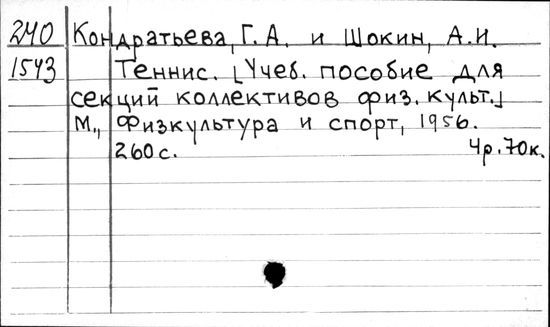 240 Кондратьева, Г. А. и Шокин, А.И.
1543 Теннис. [Учеб. пособие для
секций коллективов физ. культ.]
М., Физкультура и спорт, 1956.
260 с. 4р. 70к.